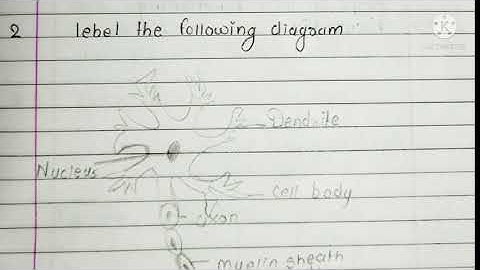 2 lebel the following diagram
Dendrite
Nucleus
Cell body
Axon
myelin sheath